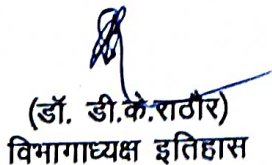 (डॉ. डी.के.राठौर)
विभागाध्यक्ष इतिहास